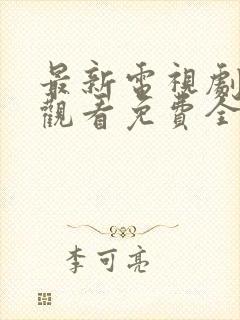 最新電視劇
觀看免費全
李可亮